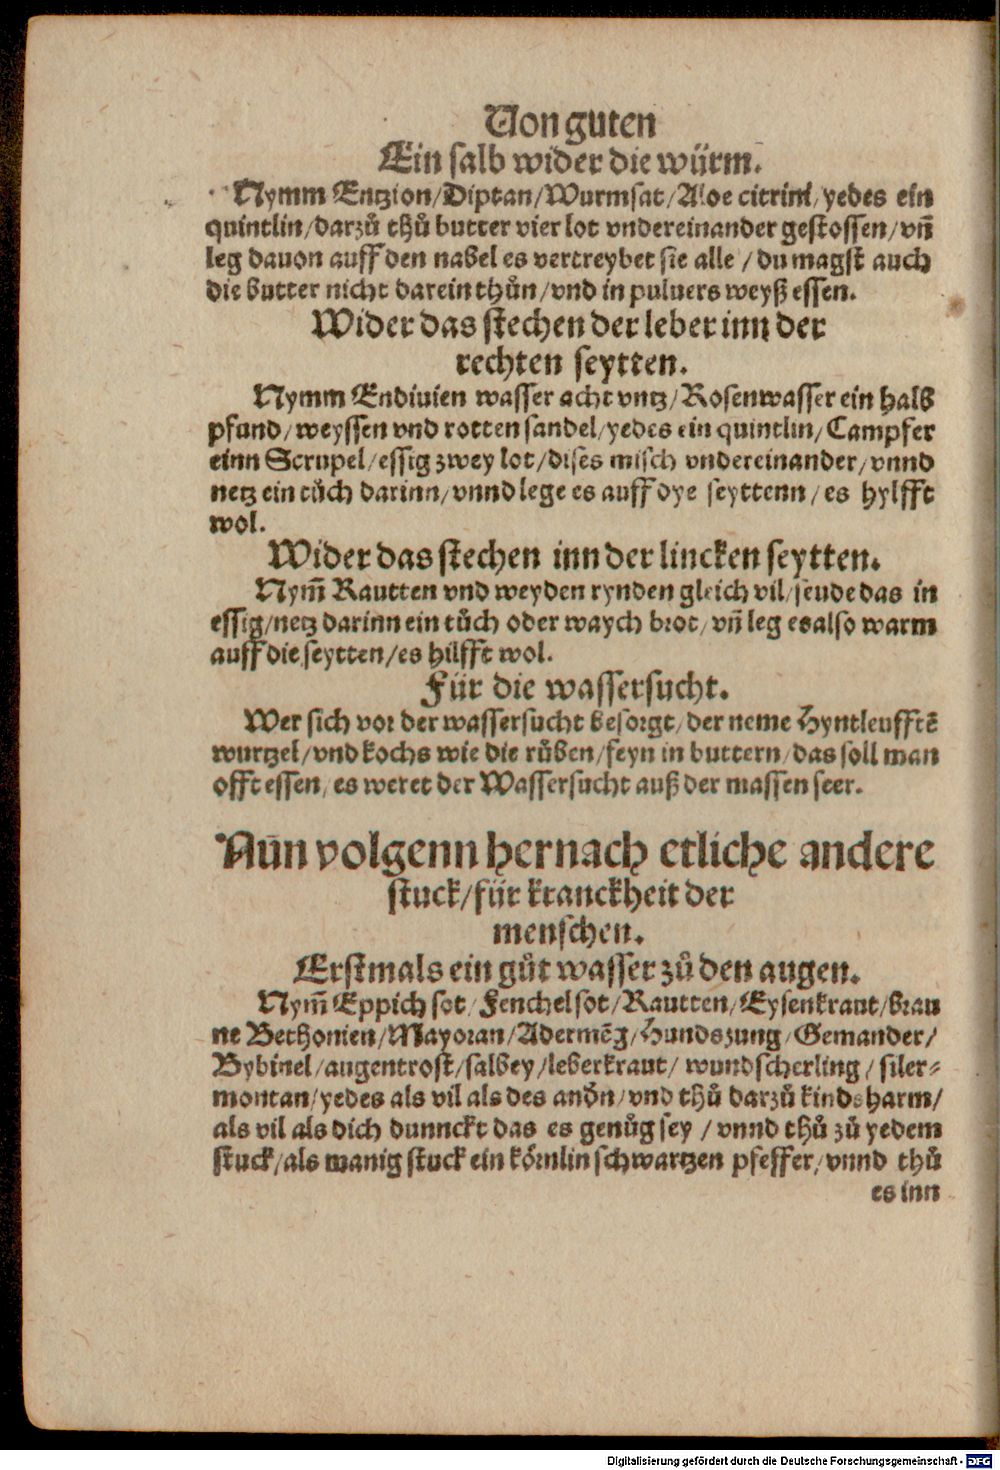 Von guten
Ein salb wider die würm.
Nymm Entzion/Diptan/Wurmsat/Aloe citrini/yedes ein
quintlin/darzů thů butter vier lot vndereinander gestossen/vñ
leg dauon auff den nabel es vertreybet sie alle/du magst auch
die butter nicht darein thůn/vnd in puluers weyß essen.
Wider das stechen der leber inn der
rechten seytten.
Nymm Endiuien wasser acht vntz/Rosenwasser ein halb
pfund/weyssen vnd rotten sandel/yedes ein quintlin/Campfer
einn Scrupel/essig zwey lot/dises misch vndereinander/vnnd
netz ein tůch darinn/vnnd lege es auff dye seyttenn/es hylfft
wol.
Wider das stechen inn der lincken seytten.
Nym̃ Rautten vnd weyden rynden gleich vil/seude das in
essig/netz darinn ein tůch oder waych brot/vñ leg es also warm
auff die seytten/es hilfft wol.
Für die wassersucht.
Wer sich vor der wassersucht besorgt/der neme Hyntleufftẽ
wurtzel/vnd kochs wie die růben/feyn in buttern/das soll man
offt essen/es weret der Wassersucht auß der massen seer.
Nun volgenn hernach etliche andere
stuck/für kranckheit der
menschen.
Erstmals ein gůt wasser zů den augen.
Nym̃ Eppich sot/Fenchelsot/Rautten/Eysenkraut/brau
ne Bethonien/Mayoran/Adermẽg/Hundszung/Gemander/
Bybinel/augentrost/salbey/leberkraut/wundscherling/siler⸗
montan/yedes als vil als des andn̄/vnd thů darzů kinds harm/
als vil als dich dunnckt das es genůg sey/vnnd thů zů yedem
stuck/als manig stuck ein körnlin schwartzen pfeffer/vnnd thů
es inn
Digitalisierung gefördert durch die Deutsche Forschungsgemeinschaft - DFG